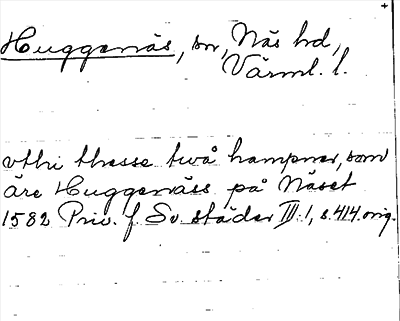 Huggenäs, sn, Näs hd,
Värml. l.
vthi thesse twå hampner, som
äre Huggenäss på Näset
1582 Priv. f. Sv städer III:1, s. 414. orig.